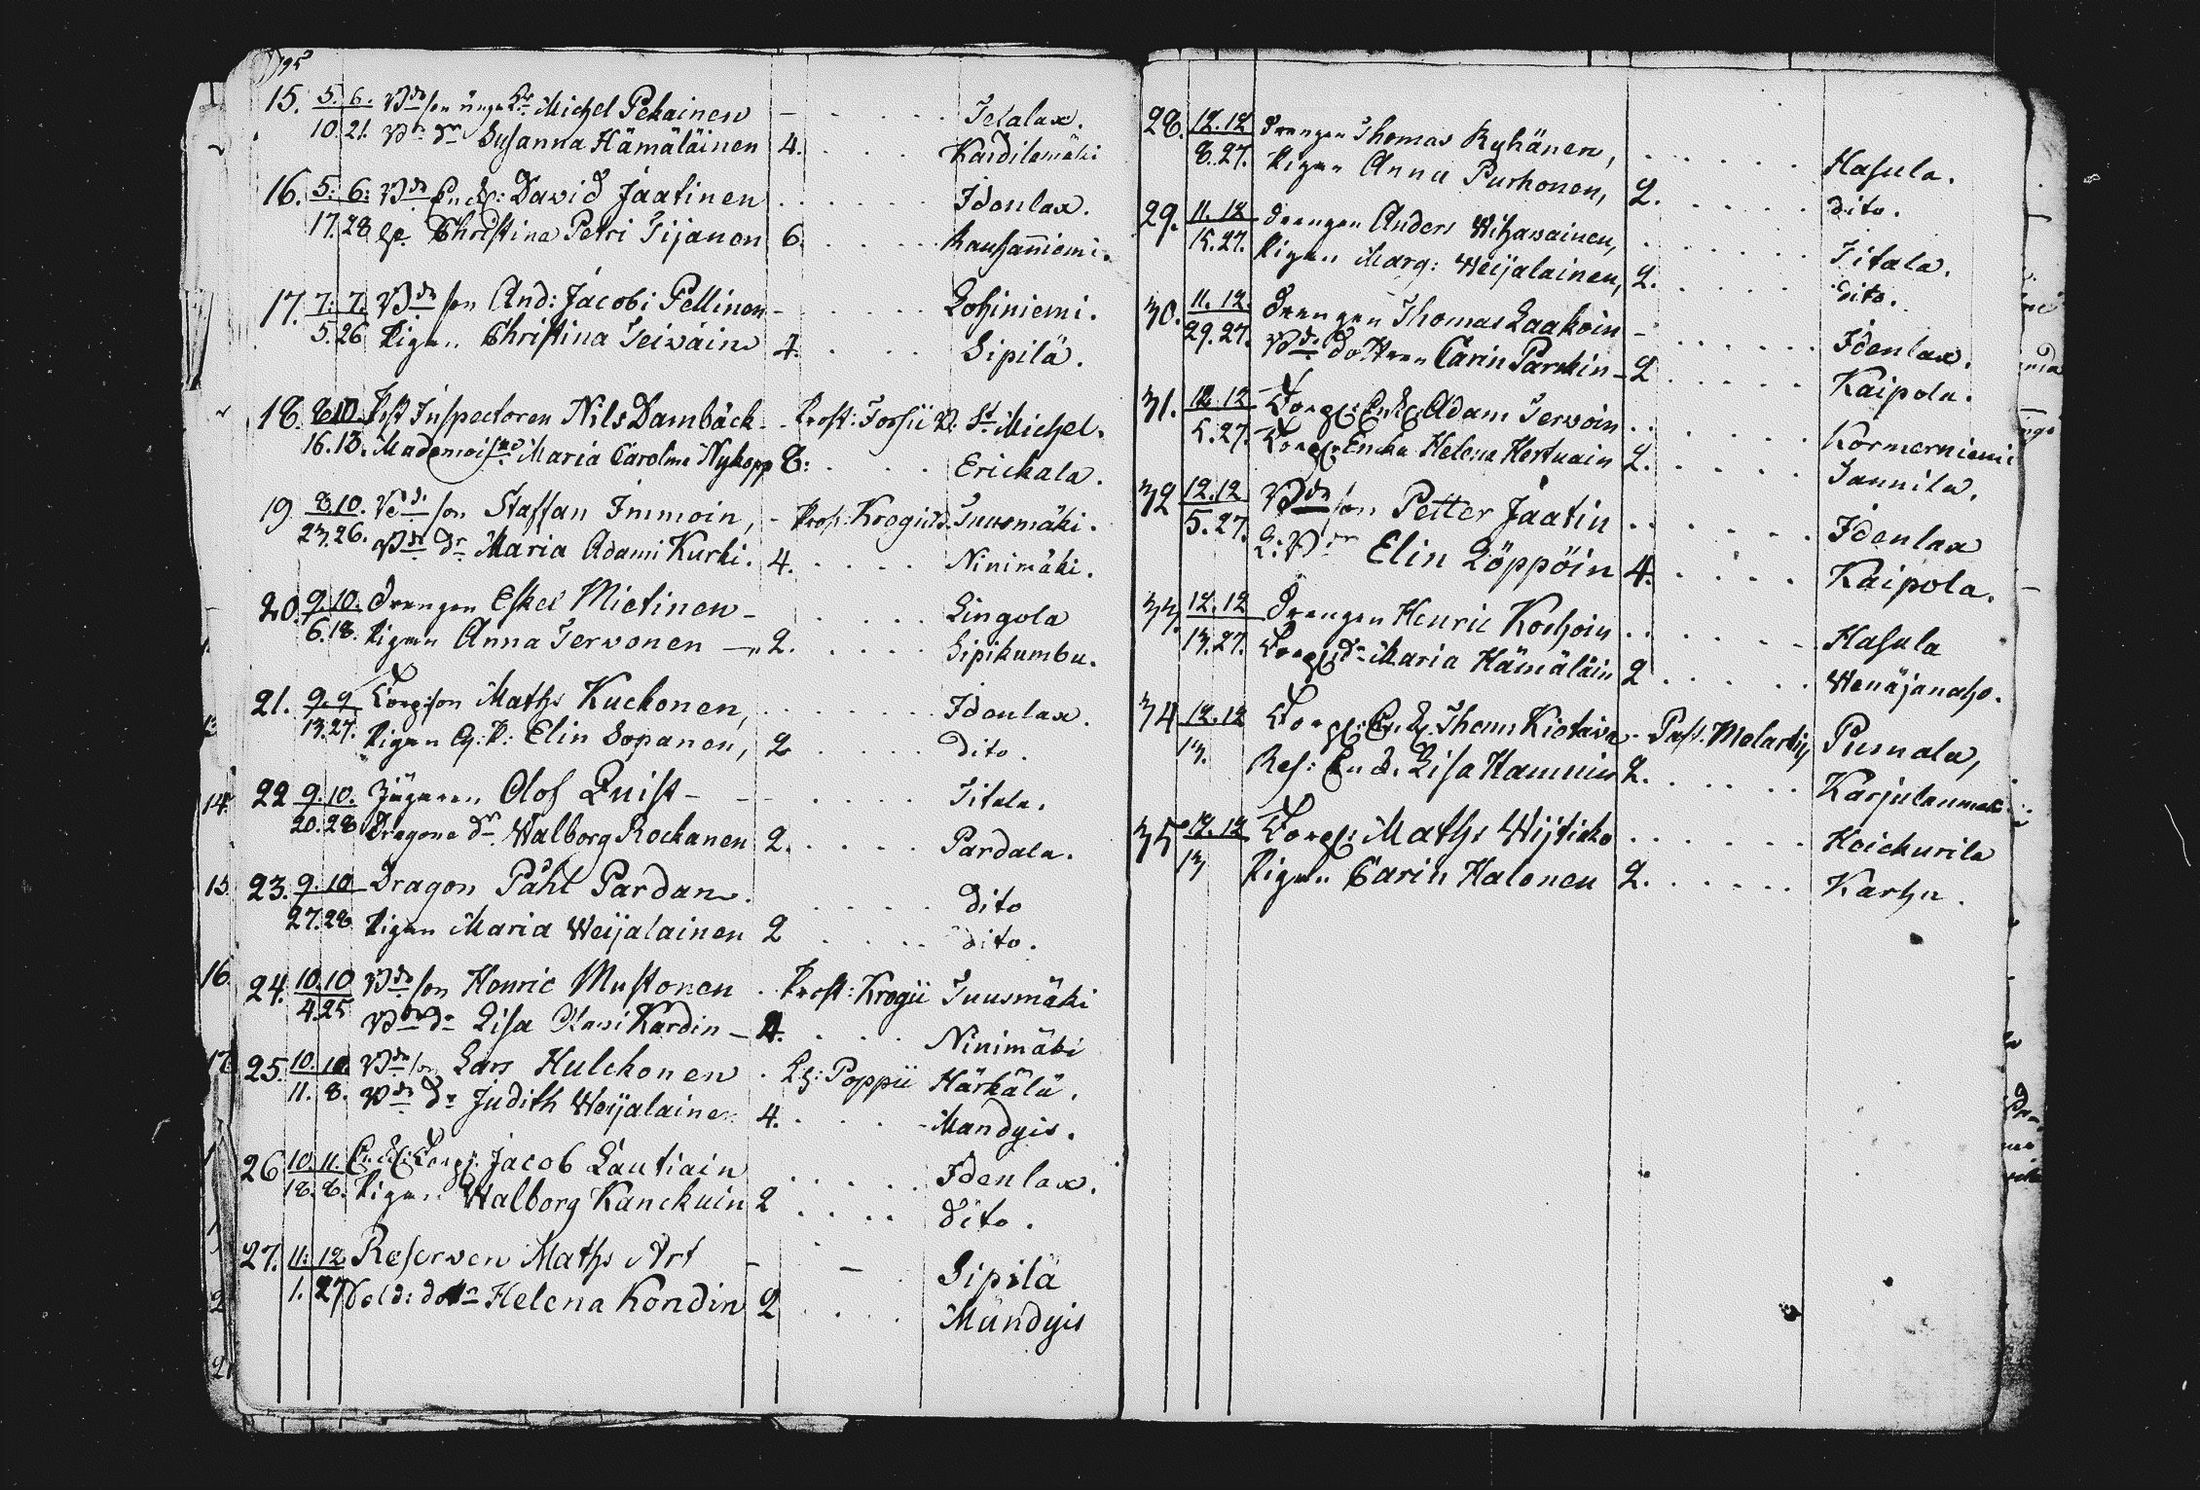 1795
15. 5. 6. Bde son unge Kr Michel Pekainen - Telalax.
10. 21. Bde Dr Susanna Hämäläinen 4. Kardilamäki
16. 5. 6: Bde Enckl: David Jäätinen Idenlax.
17. 28 Christina Petri Tijanen 6. Rauhaniemi.
17. 7. 7. Bde son And: Jacobi Pellinen - Lohiniemi.
5. 26 Pigan Christina Teiväin 4. Sipilä.
18. 8. 10. Inspectoren Nils Dambäck - Prost: Forsii St Michel.
16. 13. Mademoiselle Maria Carolina Nykopp 8: Erickala.
19 8. 10. Bde son Staffan Immoin, - Prost: Krogii Tuusmäki.
23. 26. Bde Dr Maria Adami Kurki. 4. Ninimäki.
20. 9. 10. Drengen Eskel Mietinen - Lingola
6. 18. Pigan Anna Terwonen - 2. Sipikumbu.
21. 9. 9 Torp: son Maths Kuckonen, Idenlax.
13. 27. Pigan Elin Sopanen, 2 Dito.
22 9. 10. Jägaren Olof Quist - - Titala.
20. 28 Dragone dr. Walborg Rockanen 2. Pardala.
23. 9. 10 Dragon Påhl Pardan. Dito
27. 28 Pigan Maria Weijalainen 2 Dito.
24. 10. 10 Bde son Henric Mustonen . Prost: Krogii Tuusmäki
4. 25 Bde dr Lisa Olavi Kardin - 4. Ninimäki
25. 10. 10 Bde son Lars Hulckonen . Poppii Härkälä.
11. 8. Bde dr Judith Weijalainen 4. Mandyis.
26 10. 11. Enckl: Torp: Jacob Lautiain Idenlax.
18. 8. Pigan Walborg Kanckuin 2 Dito.
27. 11: 12 Reserven Maths Art - - Sipilä
1. 27 Sold: dottr Helena Kondin 2 Mändyis
28. 12. 12 Drengen Thomas Ryhänen, Hasula.
8. 27. Pigan Anna Purhonen, 2. Dito.
29. 11. 12 Drengen Anders Wihawainen, Titala.
15. 27. Pigan Marg: Weijalainen, 2. Dito.
30. 11. 12. Drengen Thomas Laakoin - Idenlax.
29. 27. Bde Dottren Carin Parckin - 2 Kaipola.
31. 12. 12 Torp: Enckl: Adam Terwoin Kormerniemi
5. 27. Torp: Encka Helena Hertuain 2. Jannila.
32 12. 12 Bde son Petter Jäätin Idenlax
5. 27. Elin Löppöin 4. Kaipola.
33. 12. 12 Drengen Henric Kockoin - Hasula
13. 27. Torp: dr Maria Hämäläin 2 Wenäjanaho.
34 12. 12 Torp: Enckl: Thoms Kiotava - Past: Molarkij Pumala,
13. Res: Enck. Lisa Hammin 2. Karjulanmaki
35 12. 12 Torp: Maths Wijticko Hoickurila
13 Pigan Carin Halonen 2. Karhu.